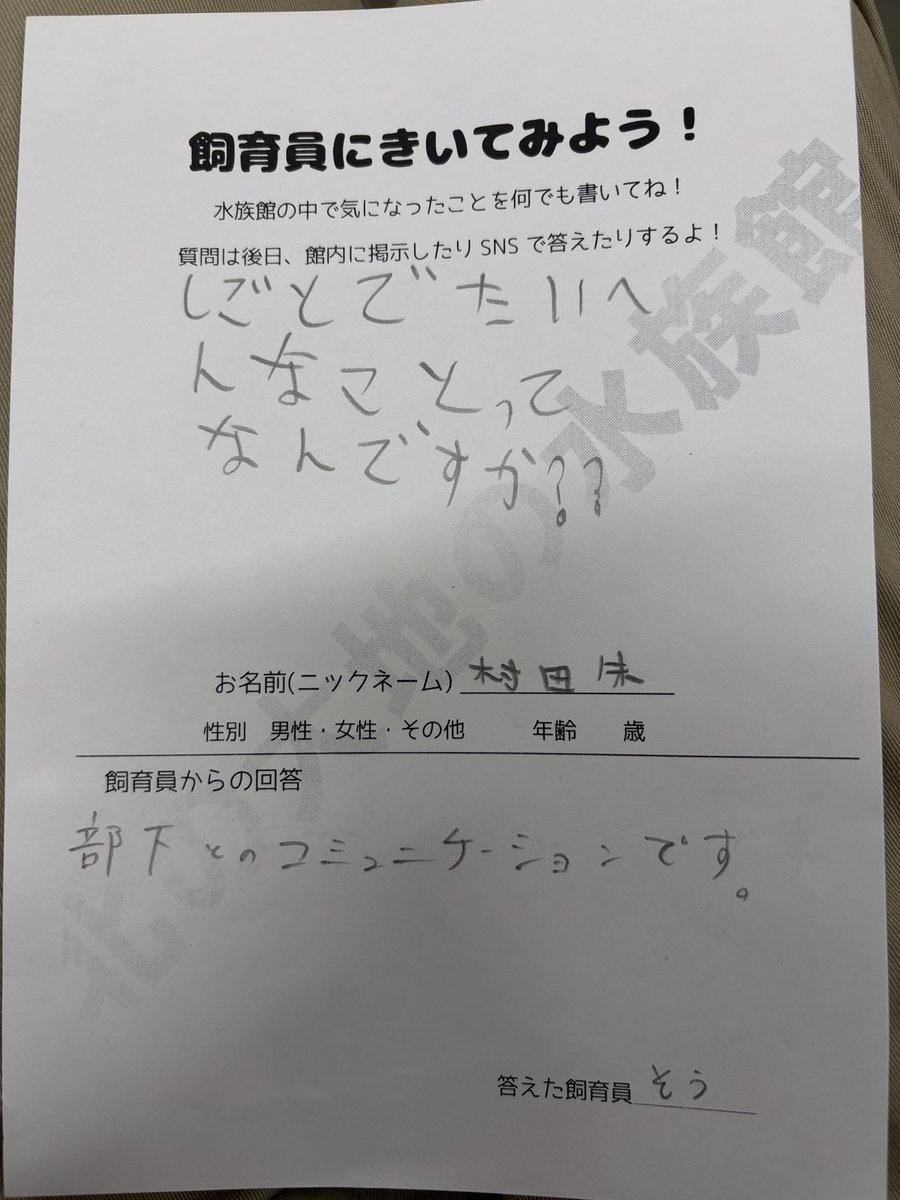 飼育員にきいてみよう！
水族館の中で気になったことを何でも書いてね！
質問は後日、館内に掲示したり SNS で答えたりするよ！
しごとでたいへ
んなことって
なんですか??
お名前(ニックネーム) 村田
性別 男性・女性・その他 年齢 歳
飼育員からの回答
部下とのコミュニケーションです。
答えた飼育員 そう
北の大地の水族館